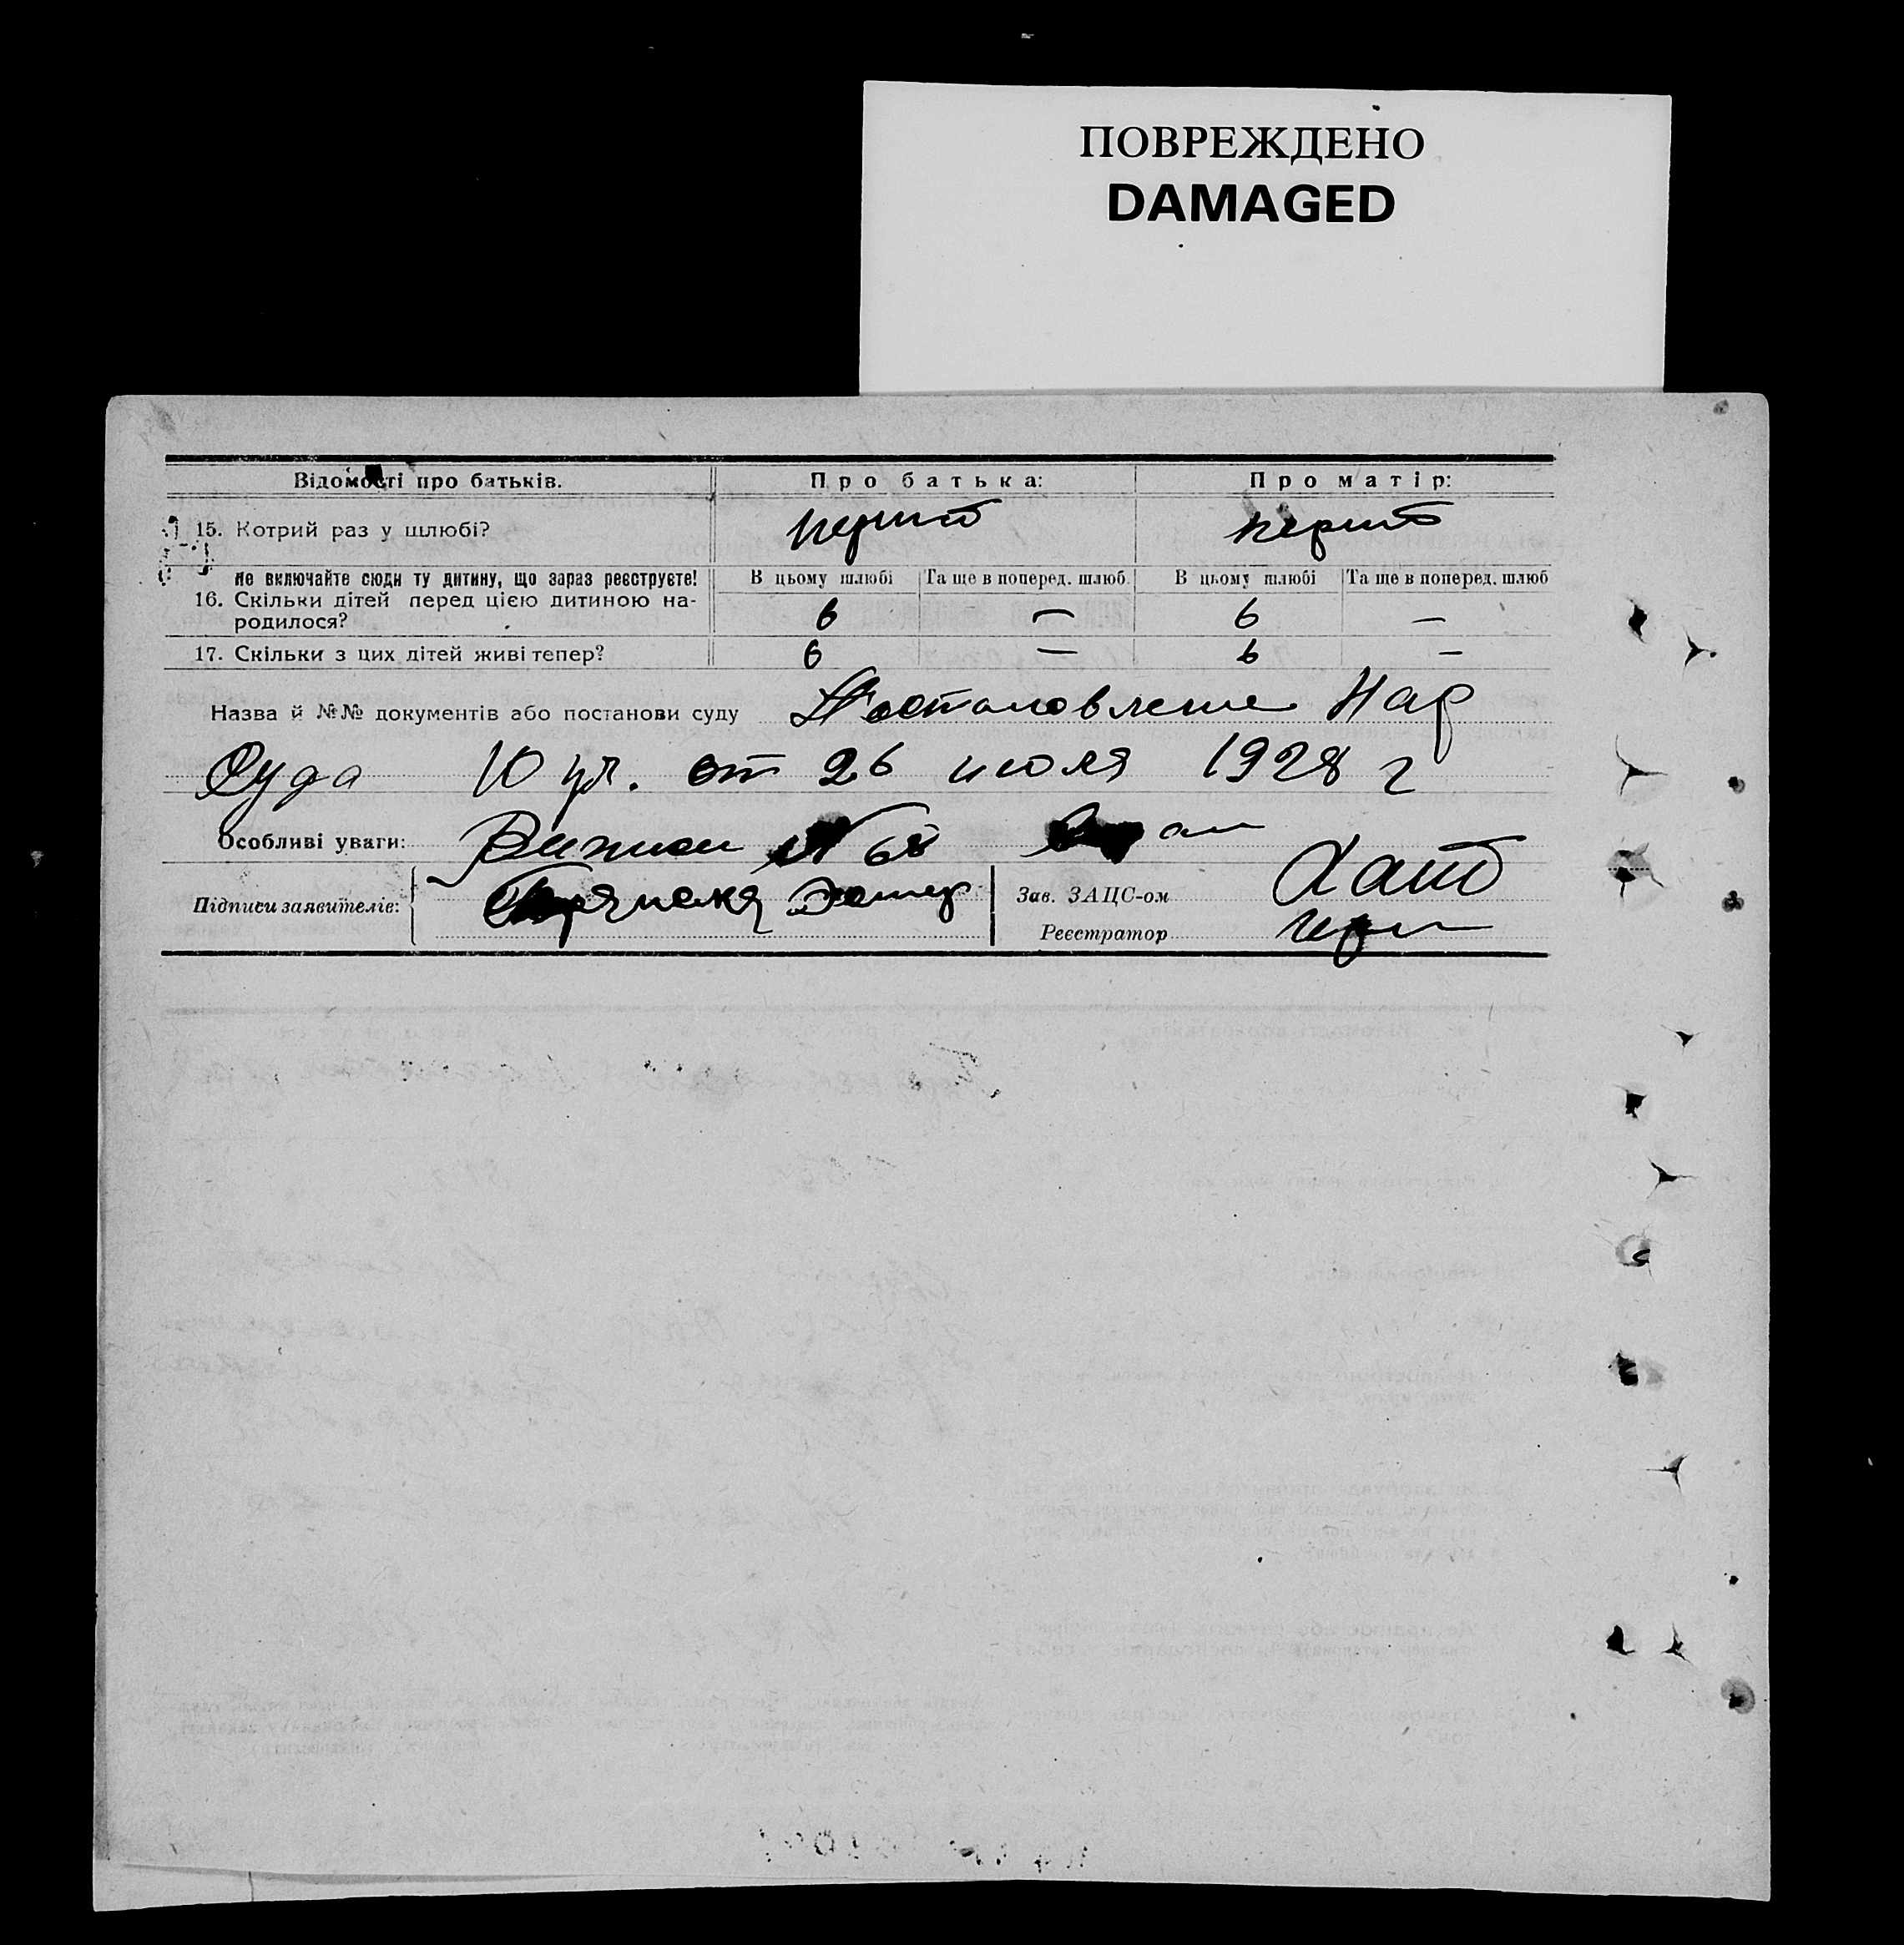 ПОВРЕЖДЕНО
DAMAGED
Відомості про батьків. Про батька: Про матір:
15. Котрий раз у шлюбі? перший перший
Не включайте сюди ту дитину, що зараз реєструєте! В цьому шлюбі Та ще в поперед. шлюб. В цьому шлюбі Та ще в поперед. шлюб
16. Скільки дітей перед цією дитиною на- 6 — 6 —
родилося?
17. Скільки з цих дітей живі тепер? 6 — 6 —
Назва й №№ документів або постанови суду Постановление Нар
Суда 10 уч. от 26 июля 1928 г
Особливі уваги: № 68
Підписи заявителів:
Зав. ЗАЦС-ом
Реєстратор